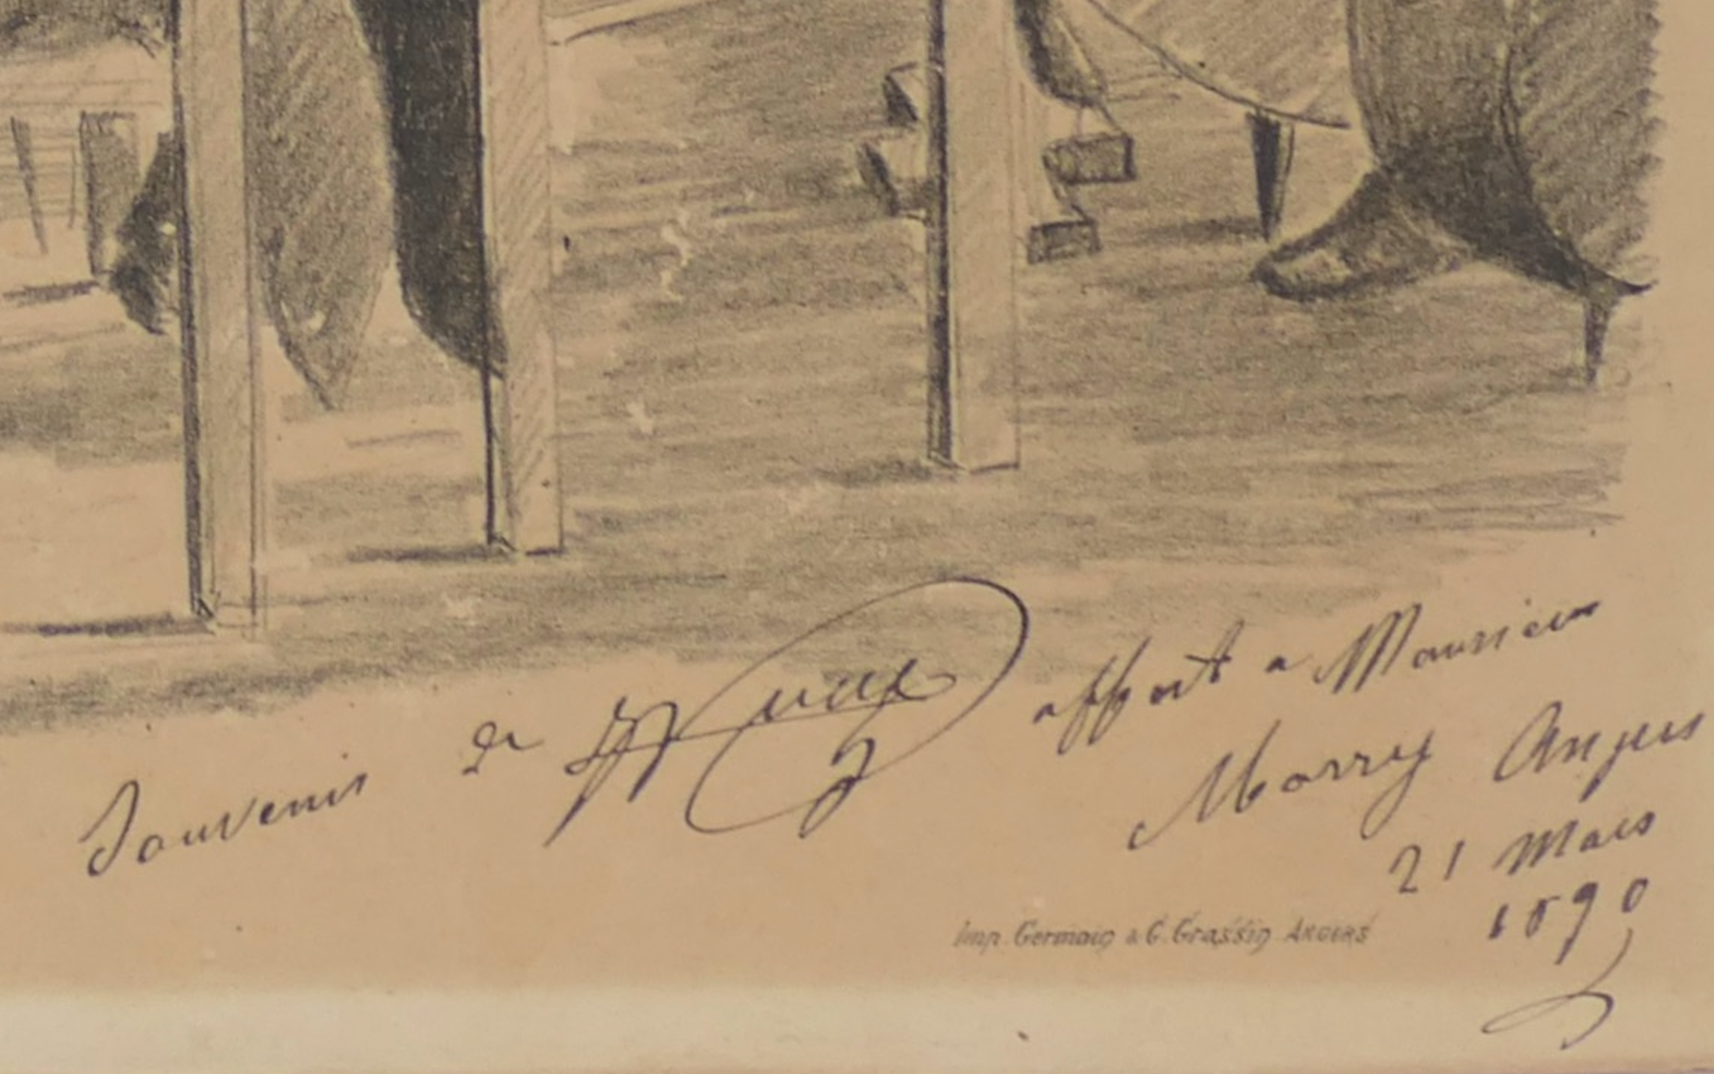 Souvenir de offert a Monsieur
Morry Angers
21 Mars
1890
Imp. Germain & G. Grassin ANGERS